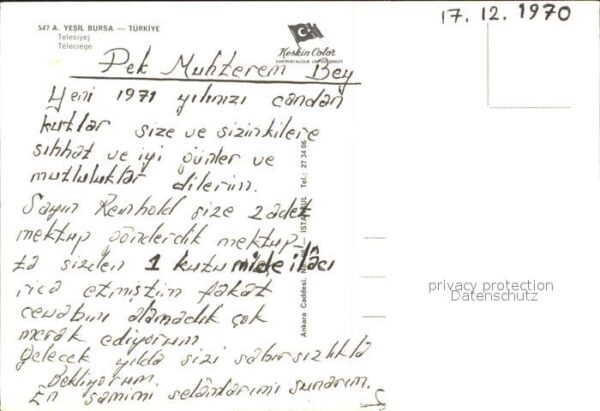 547 A. YEŞİL BURSA — TÜRKİYE
Telesiyej
Téléciège
Keskin Color
17.12.1970
Pek Muhterem Bey
Yeni 1971 yılınızı candan
kutlar size ve sizinkilere
sıhhat ve iyi günler ve
mutluluklar dilerim.
Sayın Reinhold size 2 adet
mektup gönderdik mektup-
ta sizden 1 kutu mide ilâcı
rica etmiştim fakat
cevabını alamadık çok
merak ediyorum
gelecek yılda sizi sabırsızlıkla
bekliyorum.
En samimi selâmlarımı sunarım.
Ankara Caddesi, — İSTANBUL Tel.: 27 34 06
privacy protection
Datenschutz